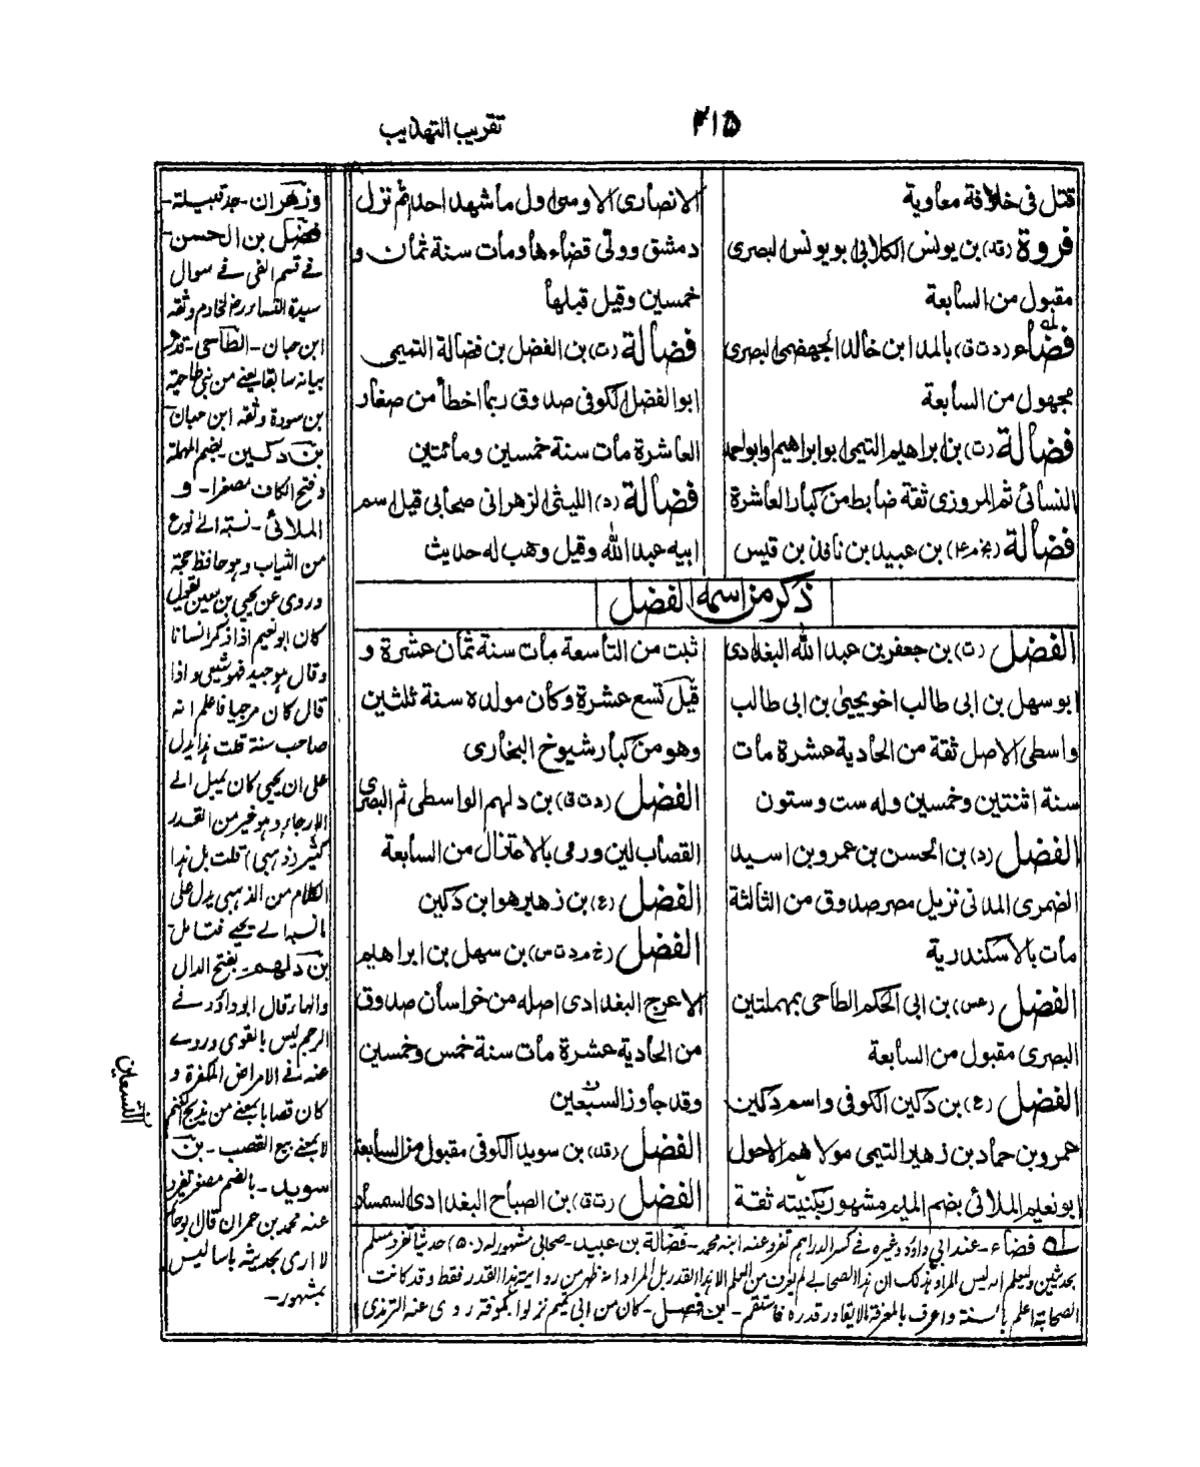 ٤١٥
تقريب التهذيب
قتل فى خلافة معاوية
فروة (قد) بن يونس الكلابى ابو يونس البصرى
مقبول من السابعة
فضاء (د ت ق) بالمد ابن خالد الجهضمى البصرى
مجهول من السابعة
فضالة (ت) بن ابراهيم التيمى ابو ابراهيم وابو احمد
النسائى ثم المروزى ثقة ضابط من كبار العاشرة
فضالة (بخ م ٤) بن عبيد بن نافذ بن قيس
الانصارى الاوسى اول ما شهد احد ثم نزل
دمشق وولى قضاءها ومات سنة ثمان و
خمسين وقيل قبلها
فضالة (ت) بن الفضل بن فضالة التميمى
ابو الفضل الكوفى صدوق ربما اخطأ من صغار
العاشرة مات سنة خمسين ومائتين
فضالة (د) الليثى الزهرانى صحابى قيل اسم
ابيه عبد الله وقيل وهب له حديث
ذكر من اسمه الفضل
الفضل (ت) بن جعفر بن عبد الله البغدادى
ابو سهل بن ابى طالب اخو يحيى بن ابى طالب
واسطى الاصل ثقة من الحادية عشرة مات
سنة اثنتين وخمسين وله ست وستون
الفضل (د) بن الحسن بن عمرو بن اسيد
الضمرى المدنى نزيل مصر صدوق من الثالثة
مات بالاسكندرية
الفضل (عس) بن ابى الحكم الطاحى بمهملتين
البصرى مقبول من السابعة
الفضل (ع) بن دكين الكوفى واسم دكين
عمرو بن حماد بن زهير التيمى مولاهم الاحول
ابو نعيم الملائى بضم الميم مشهور بكنيته ثقة
ثبت من التاسعة مات سنة ثمان عشرة و
قيل تسع عشرة وكان مولده سنة ثلثين
وهو من كبار شيوخ البخارى
الفضل (د ت ق) بن دلهم الواسطى ثم البصرى
القصاب لين ورمى بالاعتزال من السابعة
الفضل (ع) بن زهير هو ابن دكين
الفضل (خ م د ت س) بن سهل بن ابراهيم
الاعرج البغدادى اصله من خراسان صدوق
من الحادية عشرة مات سنة خمس وخمسين
وقد جاوز السبعين
الفضل (قد) بن سويد الكوفى مقبول من السابعة
الفضل (ت ق) بن الصباح البغدادى السمسار
له فضاء - عند ابى داؤد وغيره فى كسر الدراهم تفرد عنه ابنه محمد - فضالة بن عبيد - صحابى مشهور له (٥٠) حديثا تفرد مسلم
بحديثين وليعلم انه ليس المراد بذلك ان هذا الصحابى لم يعرف من العلم الا هذا القدر بل المراد انه ظهر من روايته هذا القدر فقط وقد كانت
الصحابة اعلم بالسنة واعرف بالمعرفة لا يقادر قدره فاستقم - بن فضل - كان من ابى تميم نزلوا بكوفة روى عنه الترمذى
وزهران - جد قبيلة -
فضل بن الحسن
فى قسم الفى فى سوال
سيدة النساء رض الخادم وثقه
ابن حبان - الطاحى - قد مر
بيانه سابقا يعنى من بنى طاحية
بن سودة وثقه ابن حبان
بن دكين بضم المهملة
وفتح الكاف مصغرا - و
الملائى - نسبة الى نوع
من الثياب وهو حافظ حجة
وروى عن يحيى بن معين يقول
كان ابو نعيم اذا ذكر انسانا
وقال هو جيد فهو شيعى واذا
قال كان مرجيا فاعلم انه
صاحب سنة قلت هذا يدل
على ان يحيى كان يميل الى
الارجاء وهو خير من القدر
كثير (ذهبى) قلت بل هذا
الكلام من الذهبى يدل على
النسبة الى يحيى فتامل
بن دلهم - بفتح الدال
والهاء قال ابو داؤد فى
الرجم ليس بالقوى وروى
عنه فى الامراض المكفرة و
كان قصابا يعنى من يذبح الغنم
لا بمعنى بيع القصب - بن
سويد - بالضم مصغر تفرد
عنه محمد بن حمران قال ابو حاتم
لا ارى بحديثه باسا ليس
بمشهور -
التسعين